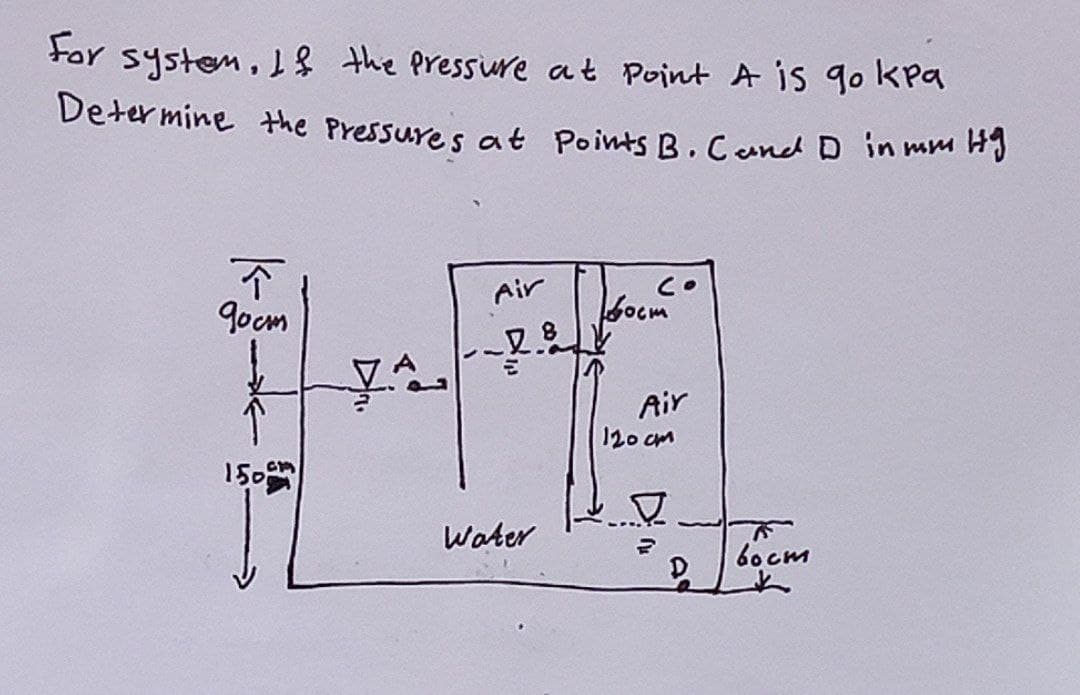 For system, If the Pressure at Point A is 90 kpa
Determine the Pressures at Points B. C and D in mm Hg
90cm
150cm
A
Air
B
Water
60cm
C
Air
120 cm
D
60cm